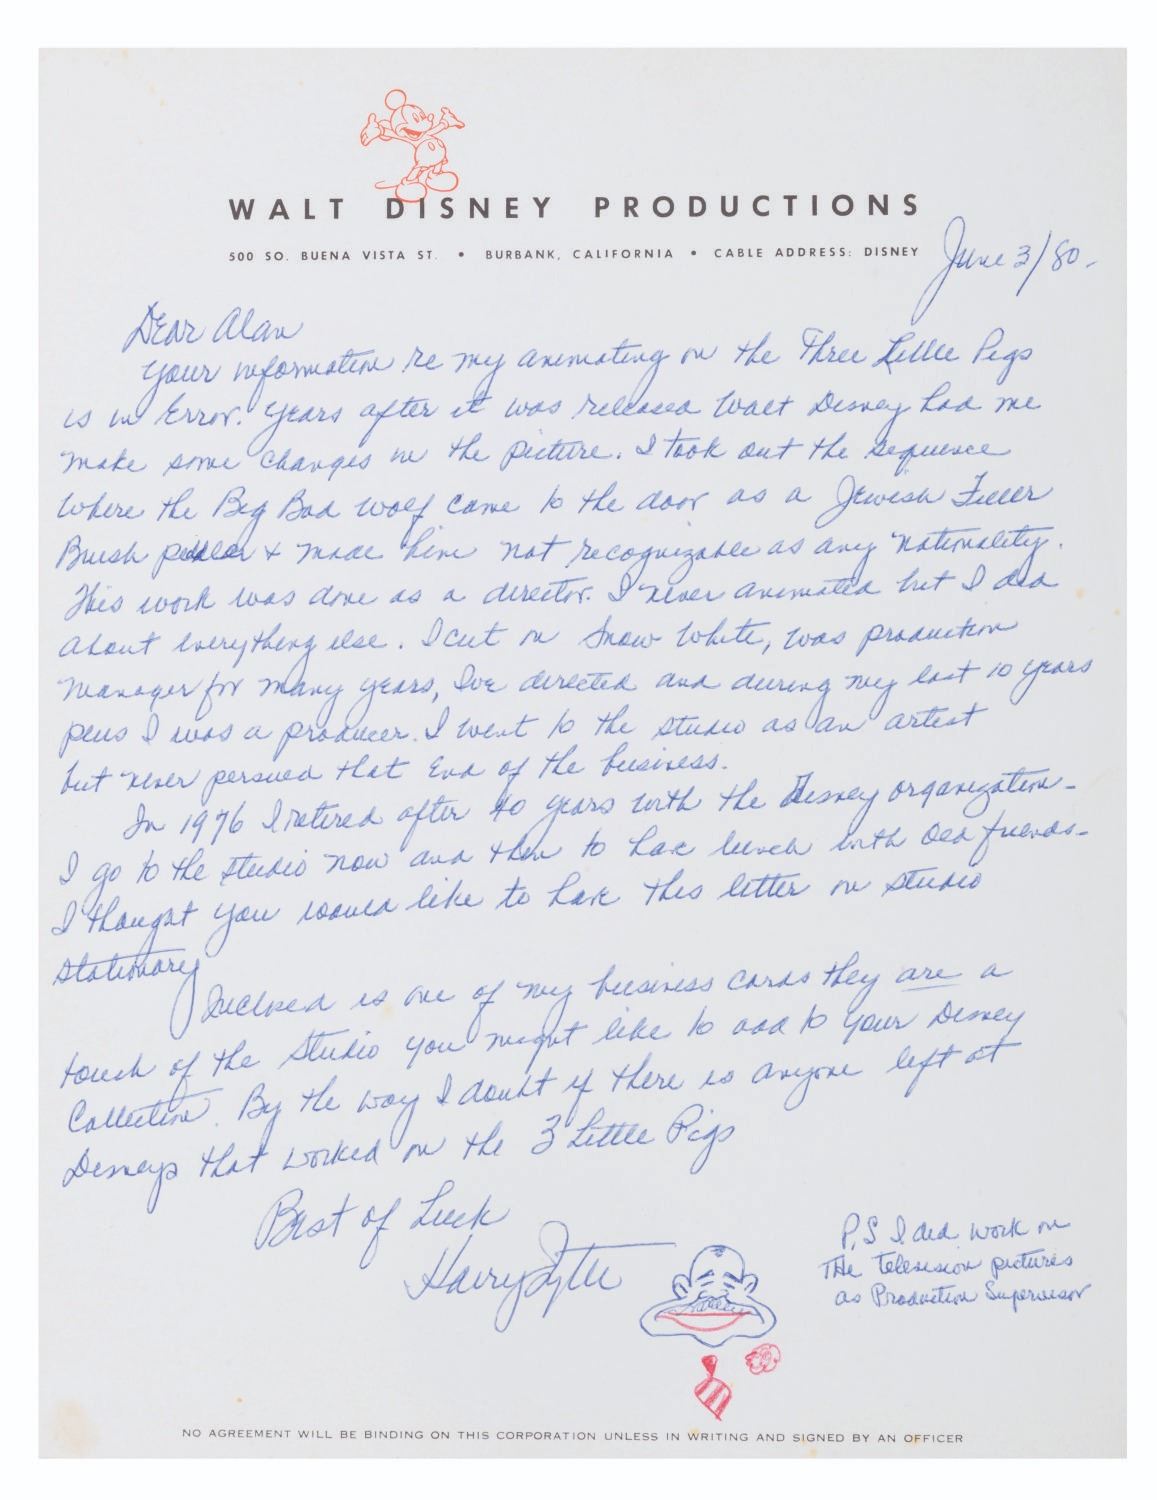 WALT DISNEY PRODUCTIONS
500 SO. BUENA VISTA ST. • BURBANK, CALIFORNIA • CABLE ADDRESS: DISNEY
June 3/80-
Dear Alan
Your information re my animating on the Three Little Pigs
is in Error. Years after it was released Walt Disney had me
make some changes in the picture. I took out the sequence
where the Big Bad Wolf came to the door as a Jewish Fuller
Brush peddler & made him not recognizable as any nationality.
This work was done as a director. I never animated but I did
about everything else. I cut on Snow White, was production
manager for many years, I've directed and during my last 10 years
plus I was a producer. I went to the studio as an artist
but never persued that End of the business.
In 1976 I retired after 40 years with the Disney organization-
I go to the studio now and then to have lunch with old friends-
I thought you would like to have this letter on studio
Stationary
Inclosed is one of my business cards they are a
touch of the Studio you might like to add to your Disney
Collection. By the way I doubt if there is anyone left at
Disneys that worked on the 3 Little Pigs
Best of Luck
Harry Tytle
P.S I did work on
The Television pictures
as Production Supervisor
NO AGREEMENT WILL BE BINDING ON THIS CORPORATION UNLESS IN WRITING AND SIGNED BY AN OFFICER